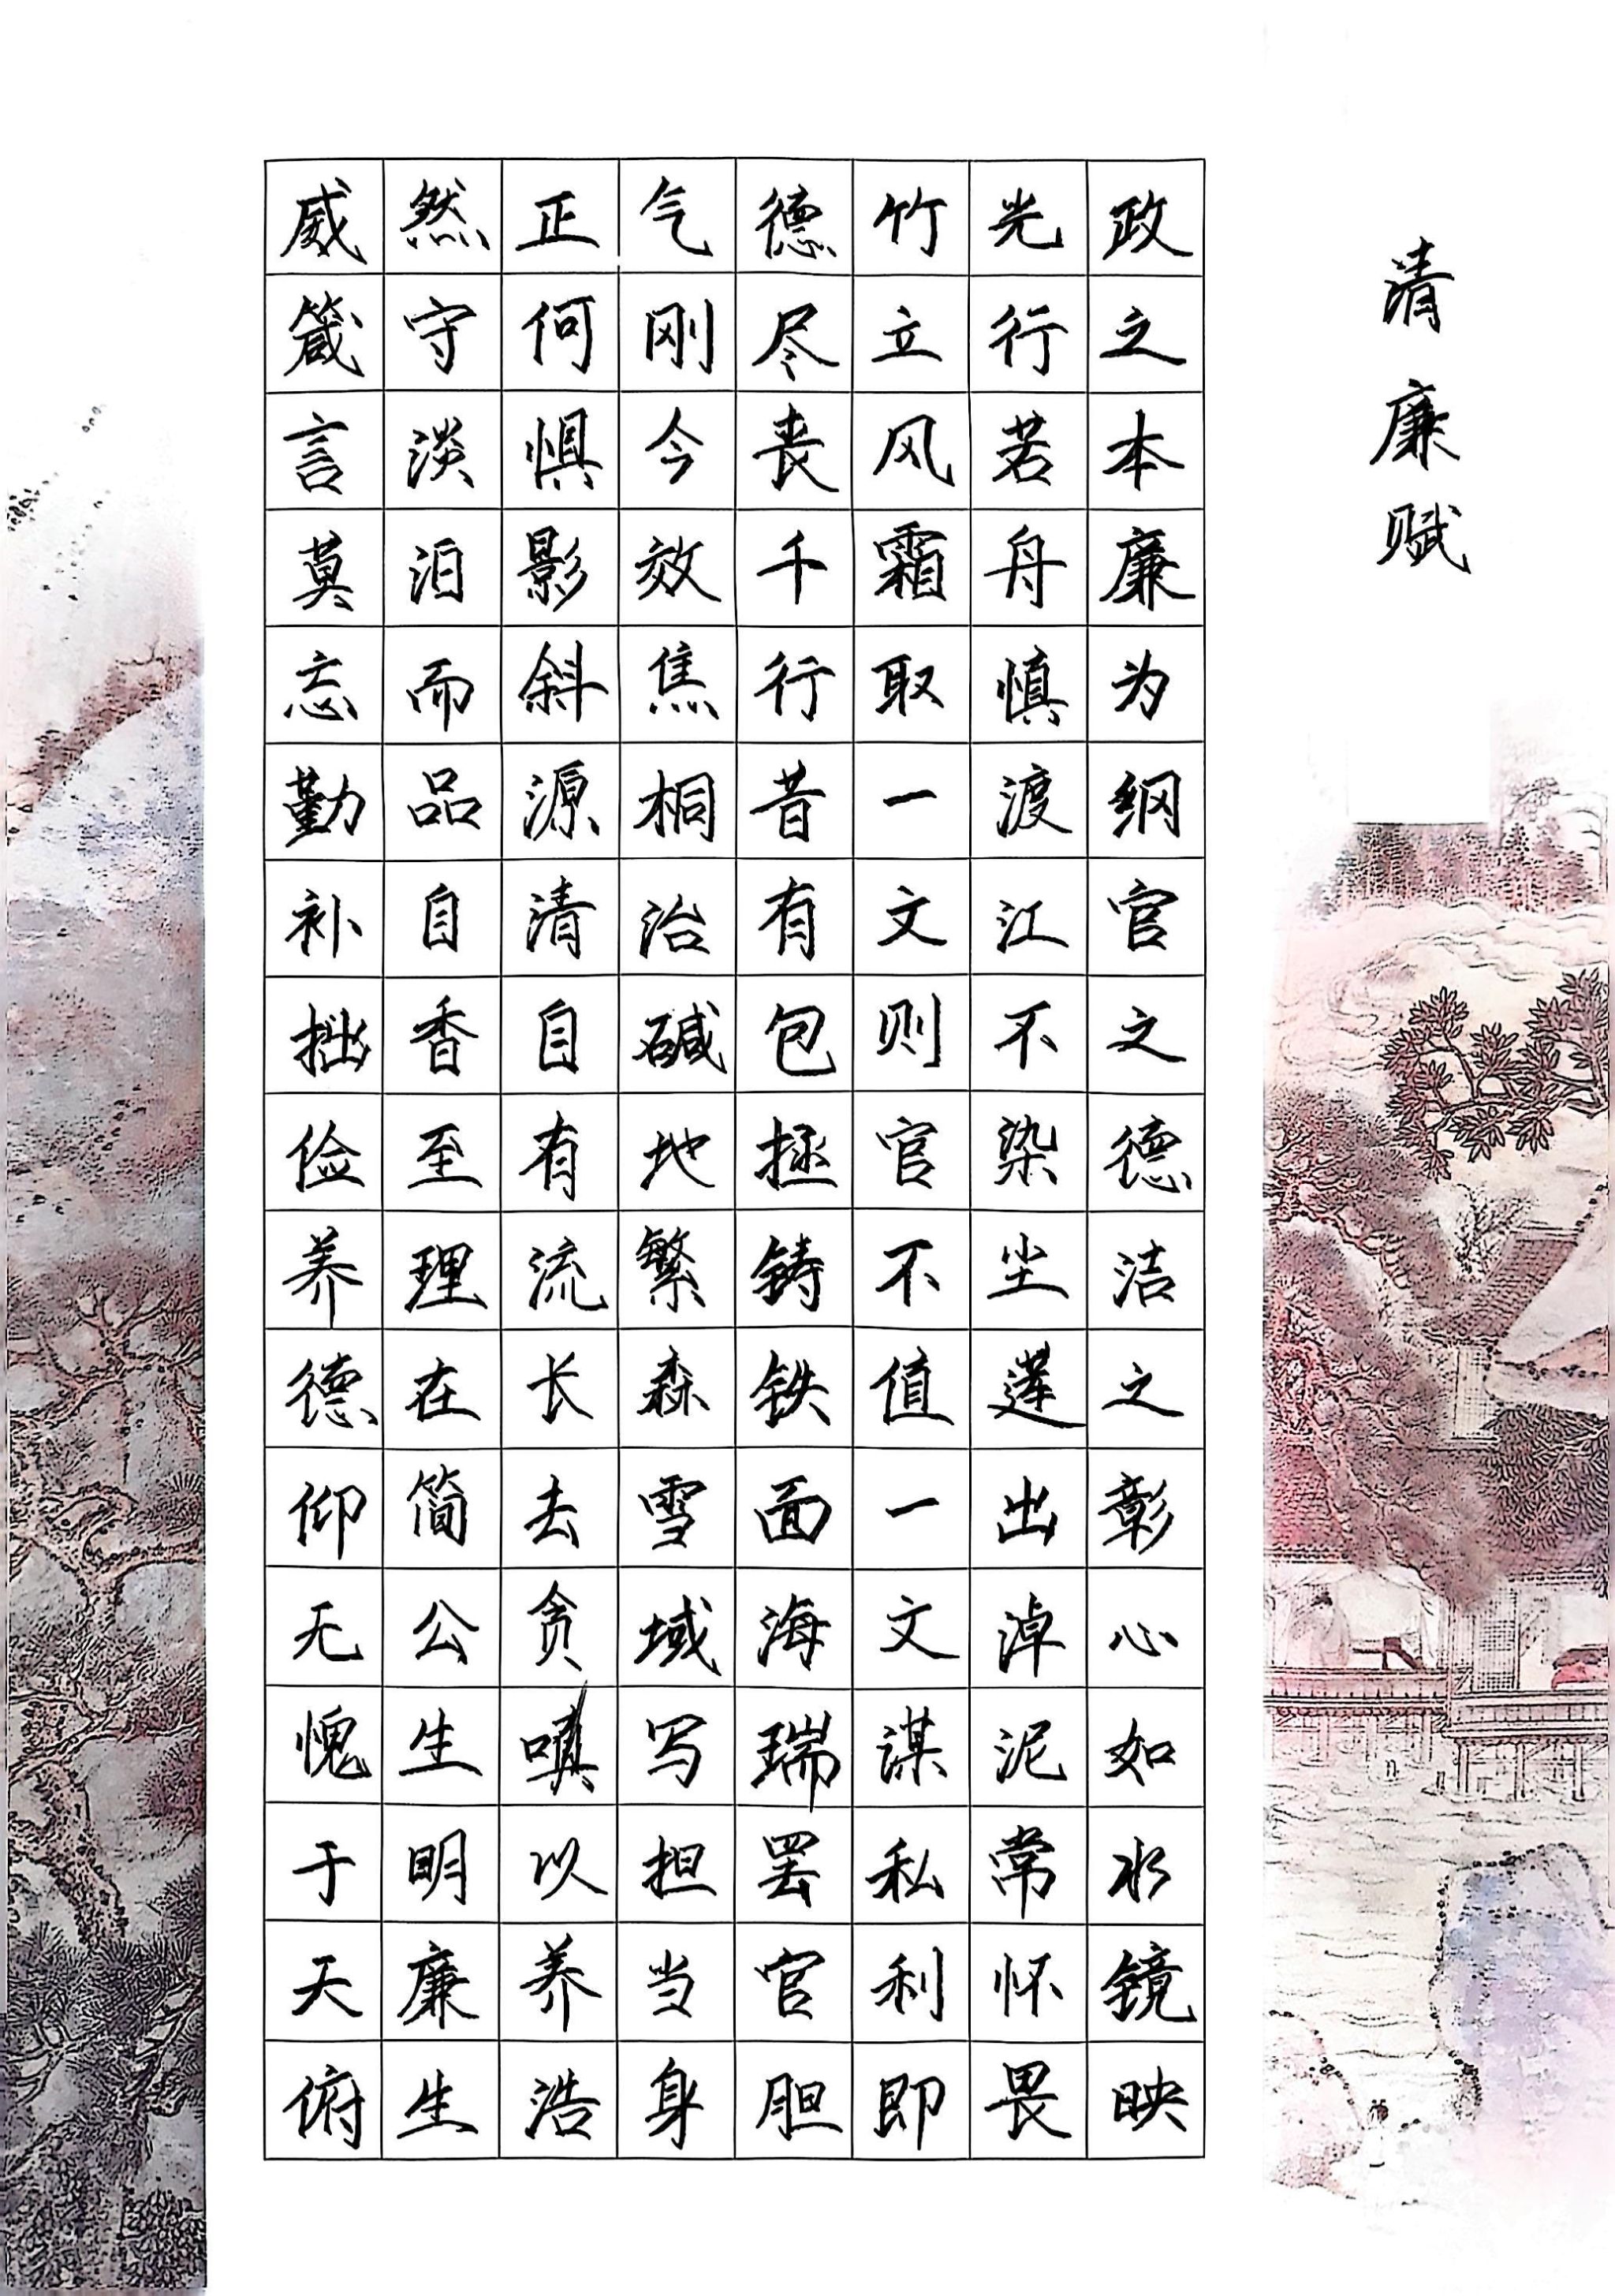 清廉赋
政之本廉为纲官之德洁之彰心如水镜映
光行若舟慎渡江不染尘莲出淖泥常怀畏
竹立风霜取一文则官不值一文谋私利即
德尽丧千行昔有包拯铸铁面海瑞罢官胆
气刚今效焦桐治碱地繁森雪域写担当身
正何惧影斜源清自有流长去贪嗔以养浩
然守淡泊而品自香至理在简公生明廉生
威箴言莫忘勤补拙俭养德仰无愧于天俯